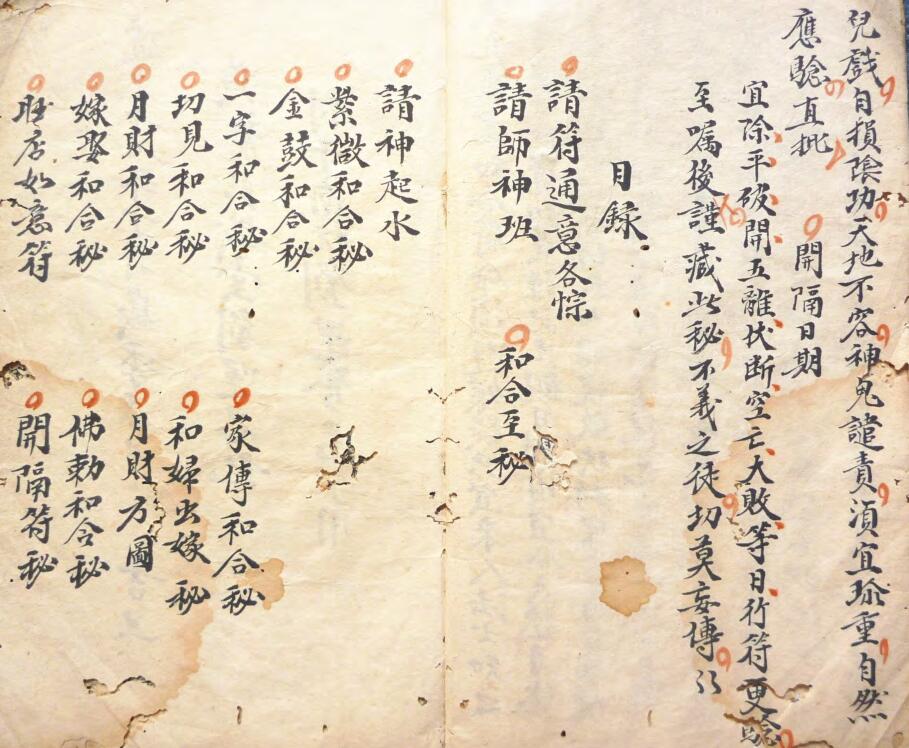 兒戲自損陰功天地不容神鬼譴責須宜珍重自然
應驗直批
開隔日期
宜除平破開五離伏斷空亡大敗等日行符更驗
至囑後謹藏此秘不義之徒切莫妄傳
目錄
請符通意各悰
請師神班
和合至秘
請神起水
紫微和合秘
金鼓和合秘
一字和合秘
家傳和合秘
切見和合秘
和婦出嫁秘
月財和合秘
月財方圖
嫁娶和合秘
佛勅和合秘
店如意符
開隔符秘